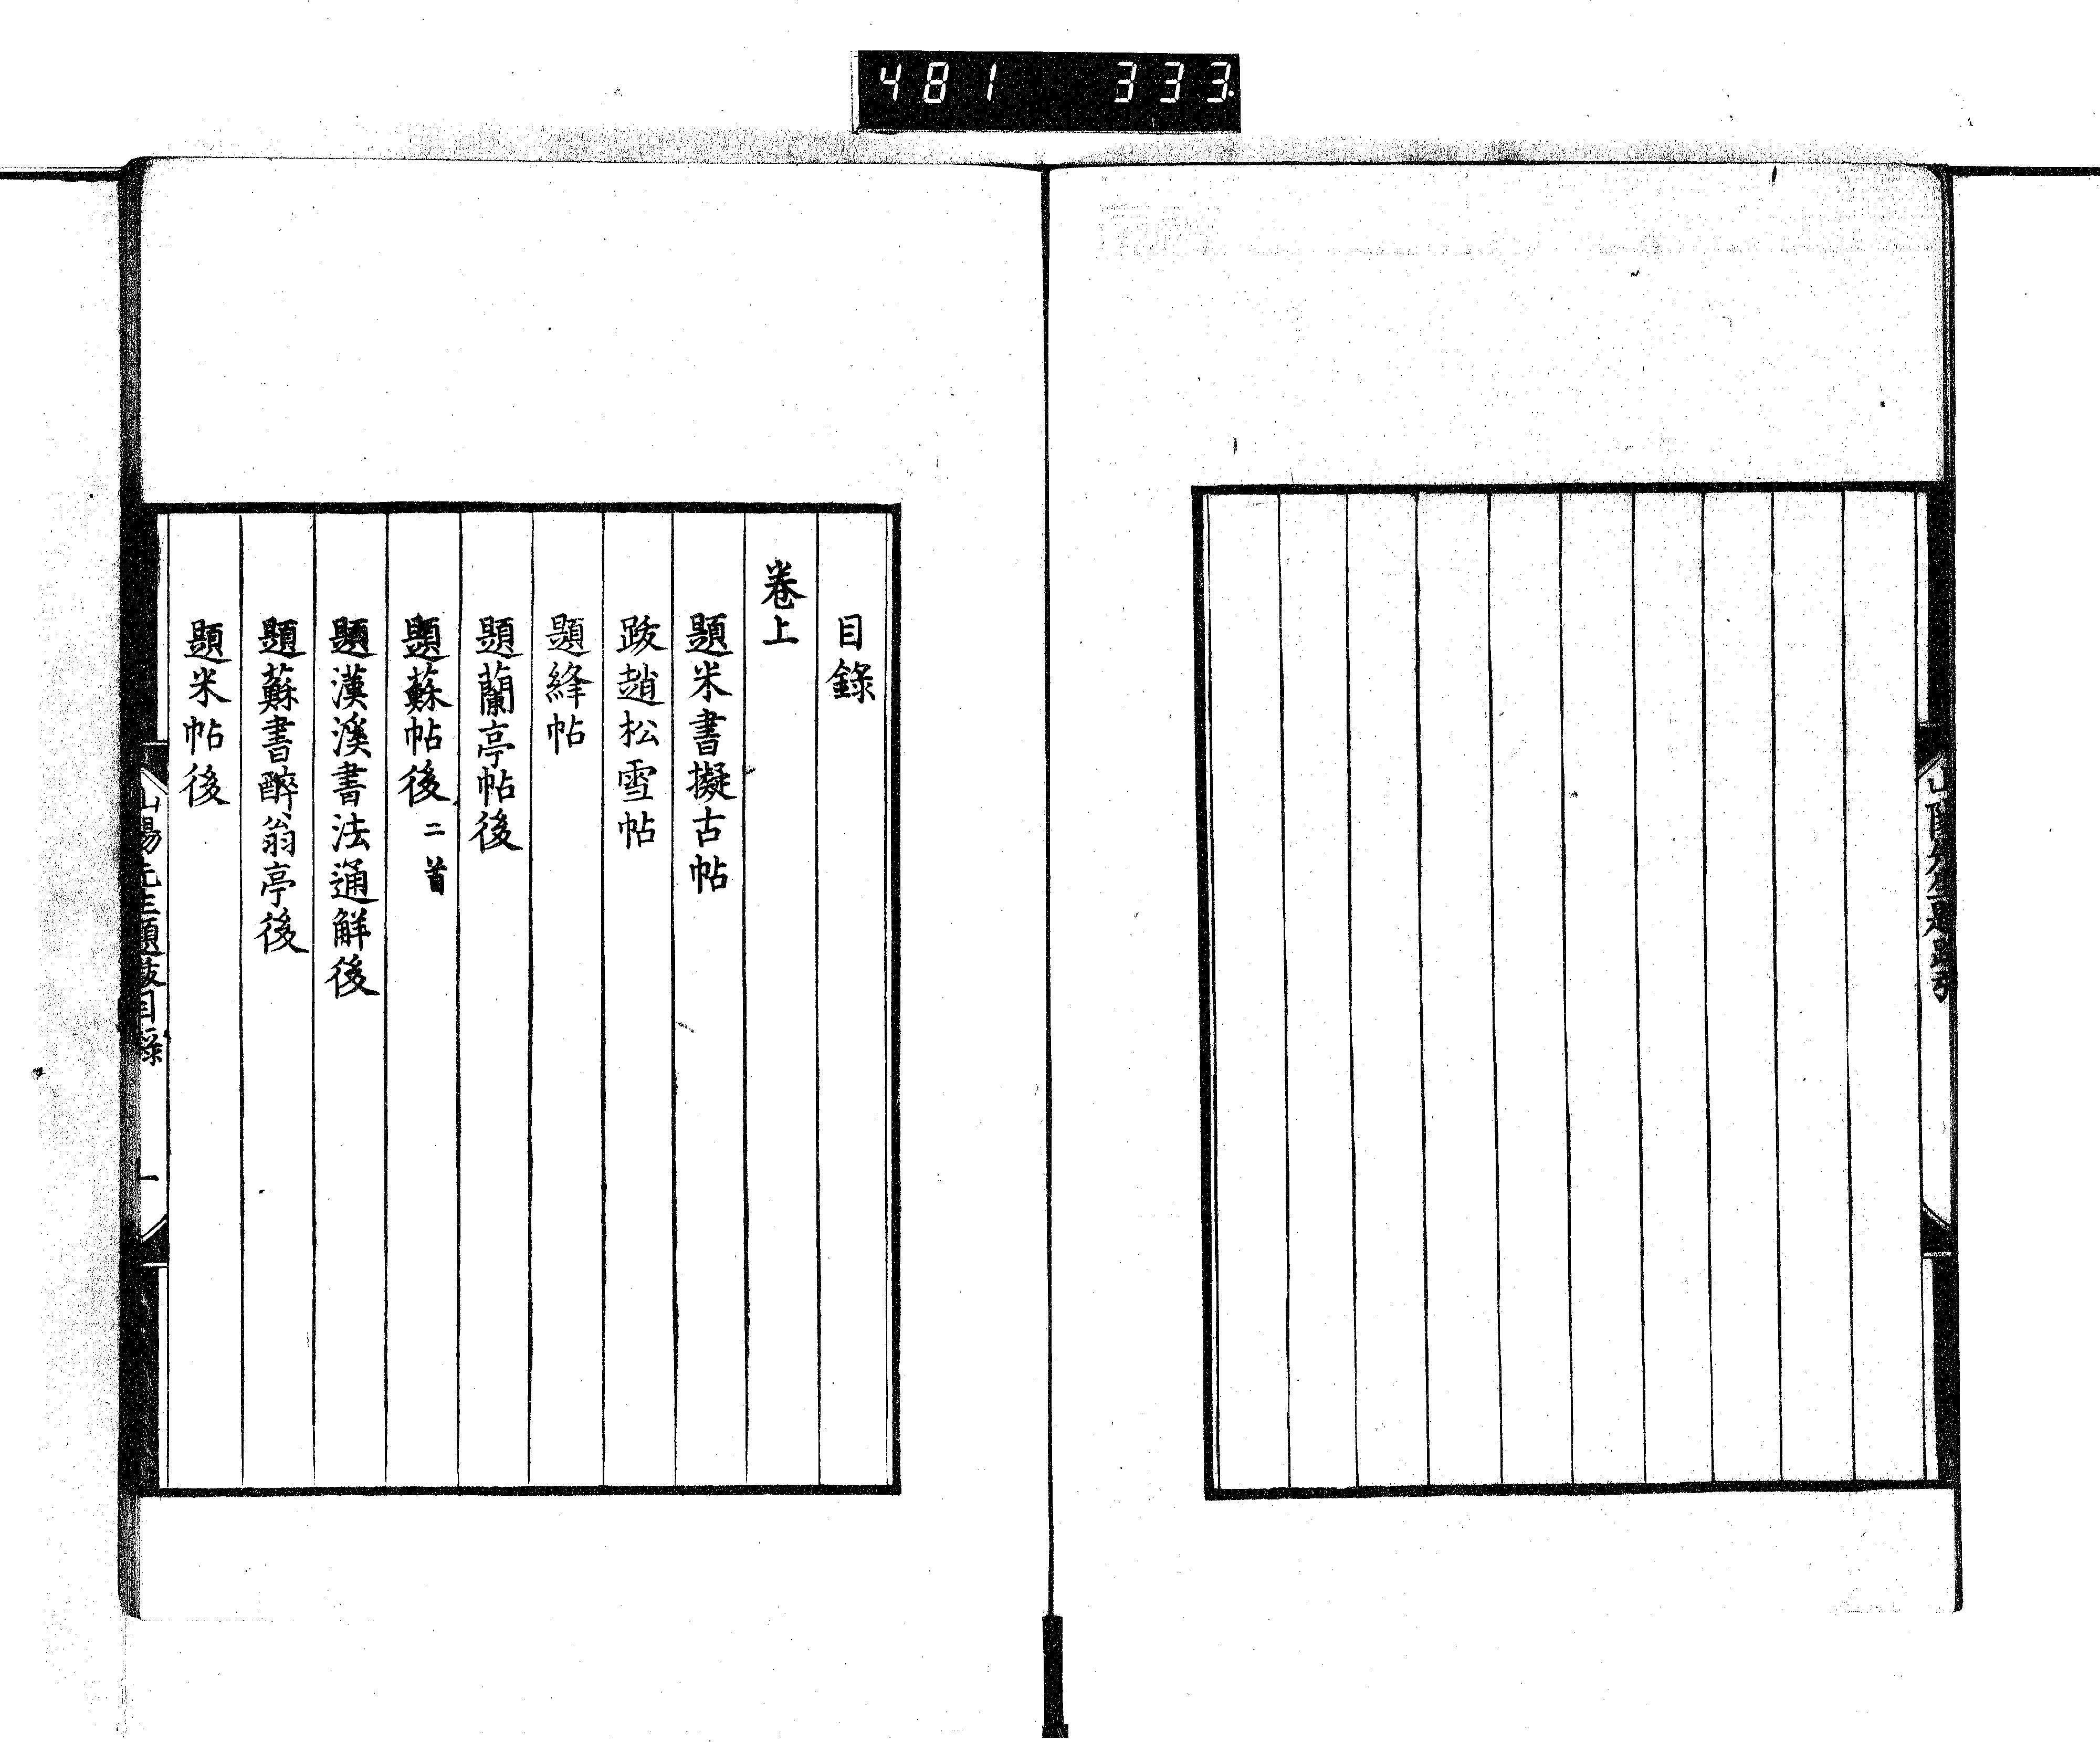 481 333.
山陽先生題跋引
目錄
卷上
題米書擬古帖
跋趙松雪帖
題絳帖
題蘭亭帖後
題蘇帖後 二首
題漢溪書法通解後
題蘇書醉翁亭後
題米帖後
山陽先生題跋目錄 一